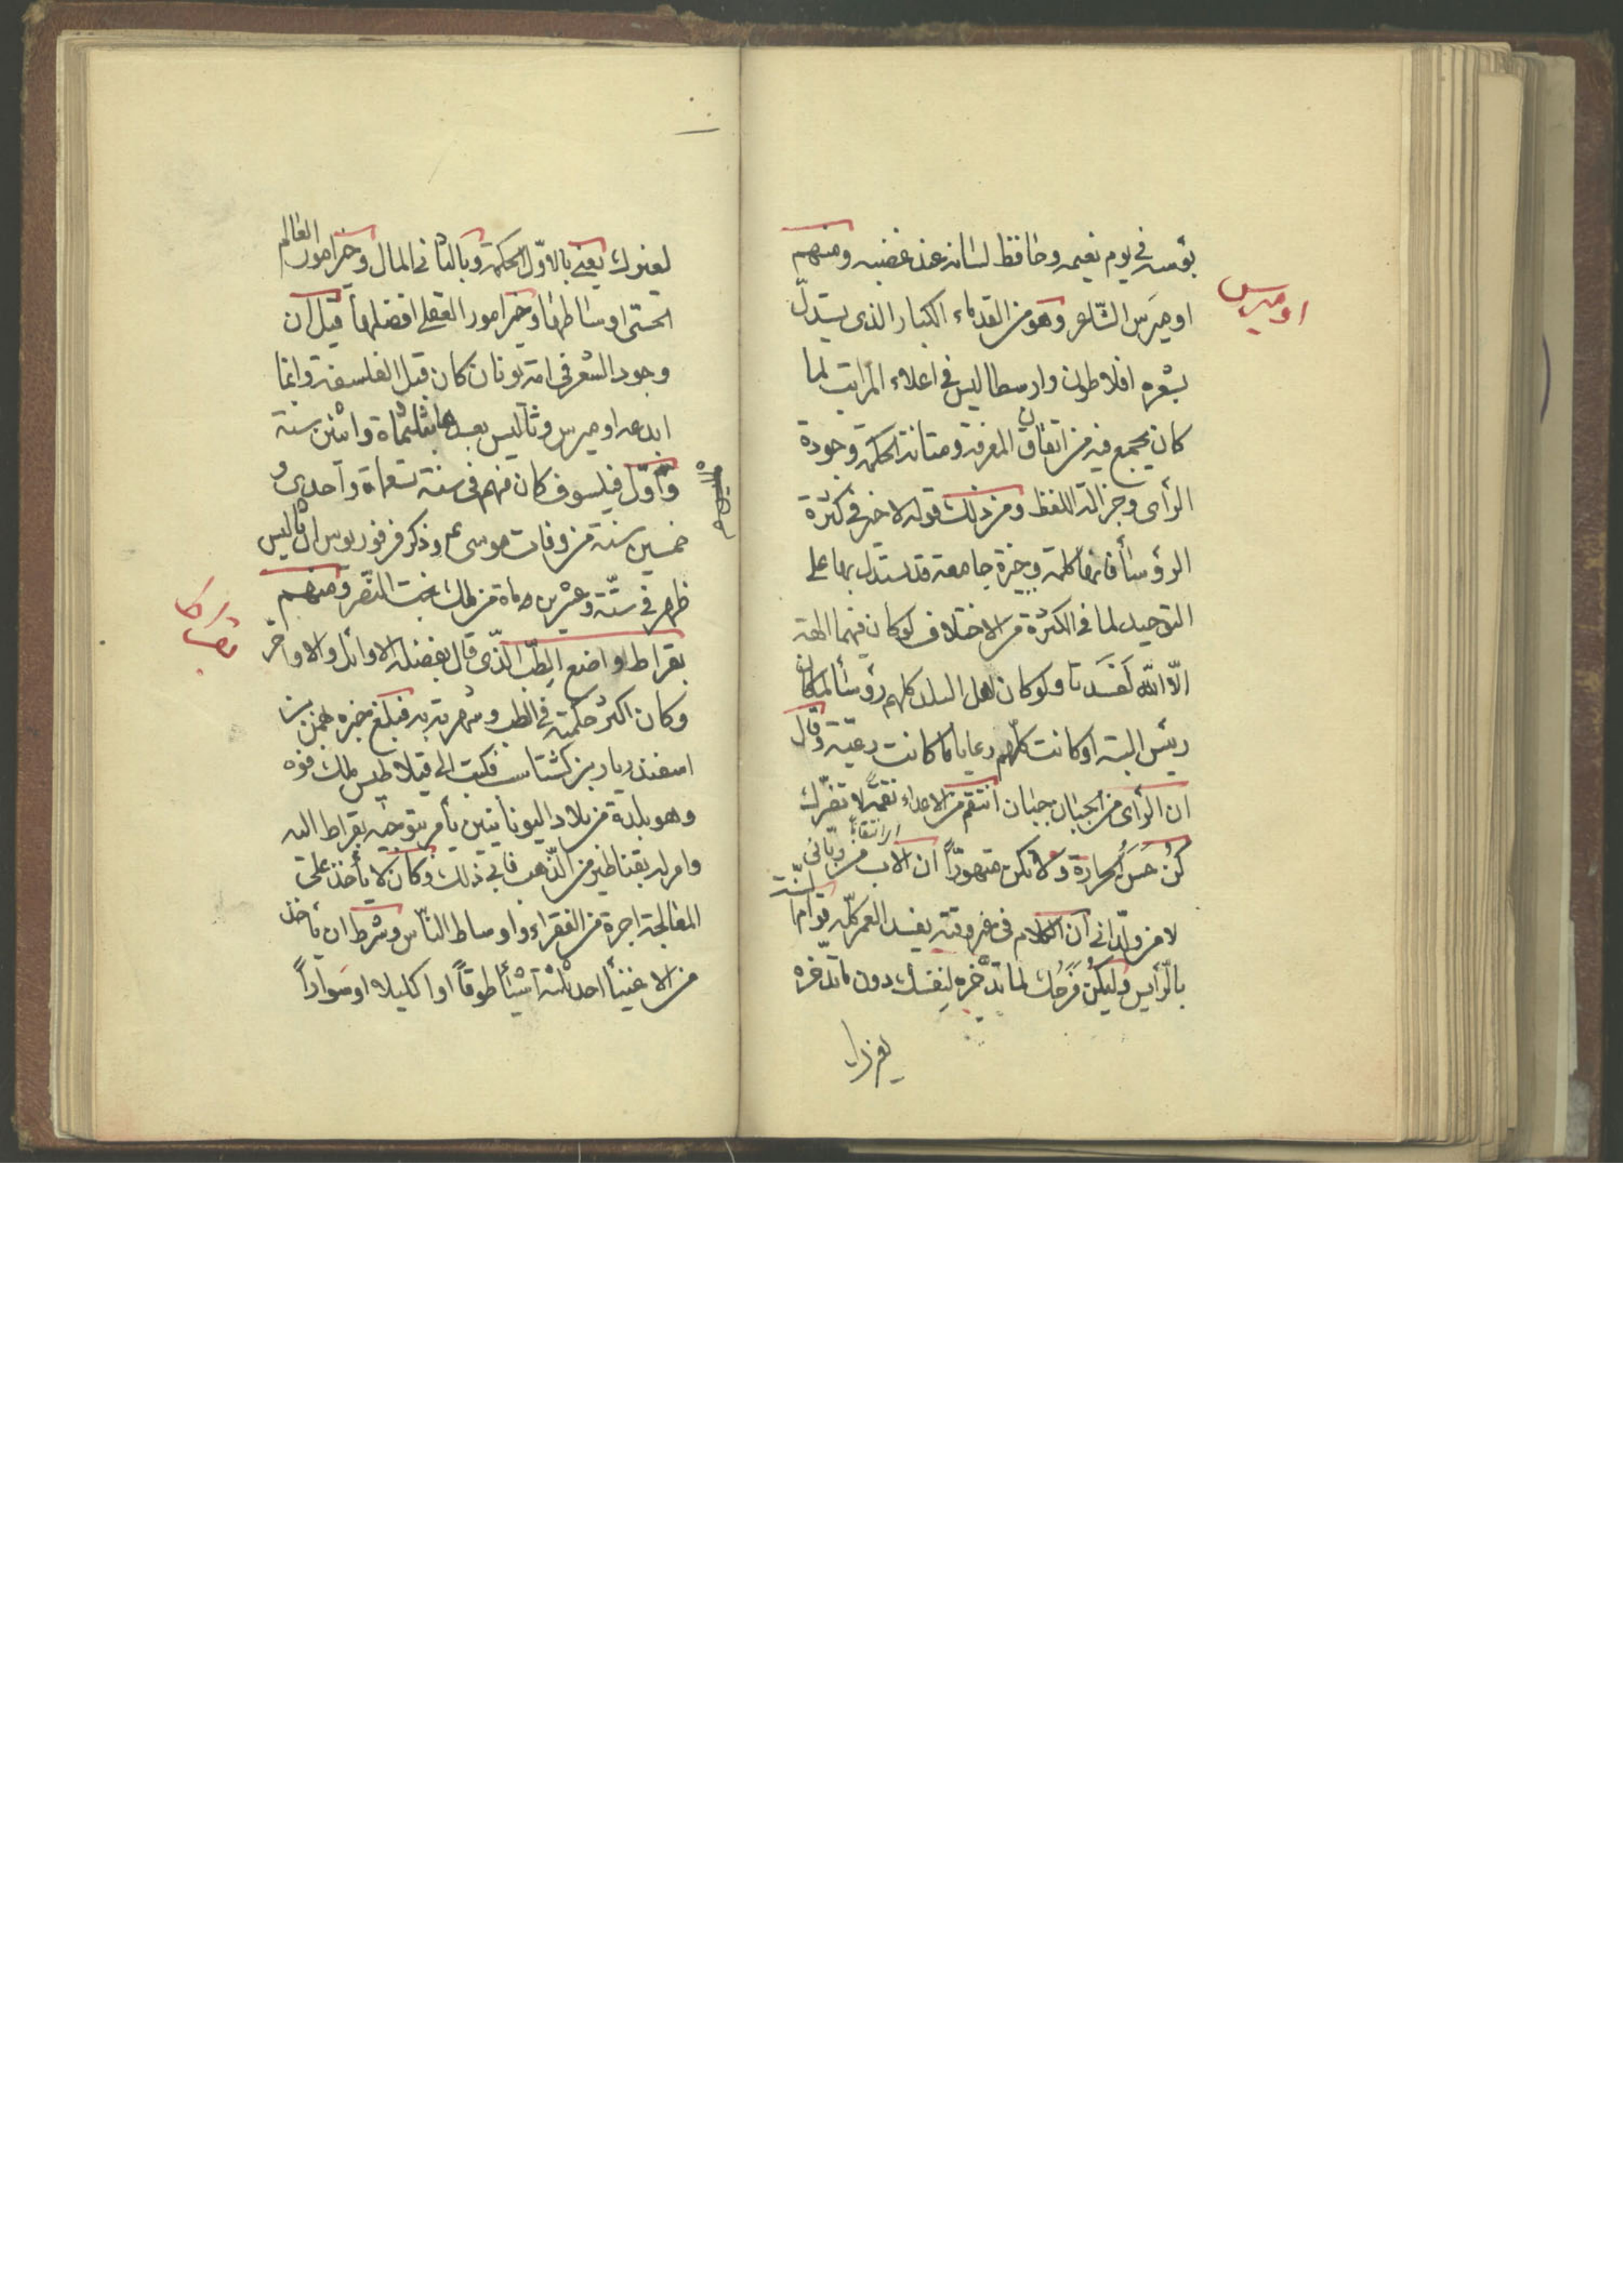 بؤسه في يوم نعيمه وحافظ لسانه عند غضبه ومنهم
اوميرس
اوميرس الشاعر وهو من القدماء الكبار الذى يستدل
بشعره افلاطون وارسطاليس فى اعلاء المراتب لما
كان يجمع فيه من اتقان المعرفة ومتانة الحكمة وجودة
الرأى وجزالة اللفظ ومن ذلك قوله لا خير فى كثرة
الرؤساء فانها كلمة وجيزة جامعة قد يستدل بها على
التوحيد لما فى الكثرة من الاختلاف لو كان فيهما الهة
الّا اللّه لَفَسَدَتا ولو كان اهل البلد كلهم رؤساء لما كان
رئيس البتة او كانت كلّهم رعايا لما كانت رعيّة وقال
ان الرأى من الجبان جبان انتقم من الاعداء نقمةً لا تضرّك
اى انتقاما
كُن حسَن الجراءة ولا تكن متهوّراً ان الاب من ربّانى
لا من ولّدانى ان الكلام فى غير وقته يفسد العمر كلّه قوام
السنّة
بالرّأيس وليكُن فَرَحُك لما تدّخره لنفسك دون ما تدّخره
لغيرك
لغيرك يعنى بالاوّل الحكمة وبالثانى المال وخير امور العالم
الحسّى اوساطها وخير امور العقلى افضلها قيل ان
وجود الشعر فى امة يونان كان قبل الفلسفة وانما
ابدعه اوميرس وثاليس بعده بثلثماة واثنين سنة
وأوّل فيلسوف كان منهم فى سنة تسعماة واحدى و
خمسين سنة من وفات موسى عم وذكر فرفوريوس ان ثاليس
ظهر فى ستّة وعشرين وماة من ملك بخت النصّر ومنهم
بقراط
بقراط واضع الطبّ الّذى قال بفضله الاوائل والاواخر
وكان اكثر حكمته فى الطب وشهرته به فبلغ خبره بهمن بن
اسفنديار بن كشتاسب فكتب الى فيلاطس ملك قوه
وهو بلدة من بلاد اليونانيّين يأمر بتوجيه بقراط اليه
وامر له بقناطير من الذّهب فابى ذلك وكان لا يأخذ على
المعالجة اجرة من الفقراء واوساط النّاس وشرط ان يأخذ
من الاغنيأ احد ثلثة اشيأ طوقاً او اكليلا او سواراً